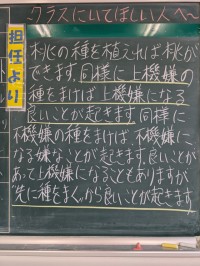 ～クラスにいてほしい人へ～
担任より
桃の種を植えれば桃が
できます。同様に上機嫌の
種をまけば上機嫌になる
良いことが起きます。同様に
不機嫌の種をまけば、不機嫌に
なる嫌なことが起きます。良いことが
あって上機嫌になることもありますが
先に種をまくから良いことが起きます